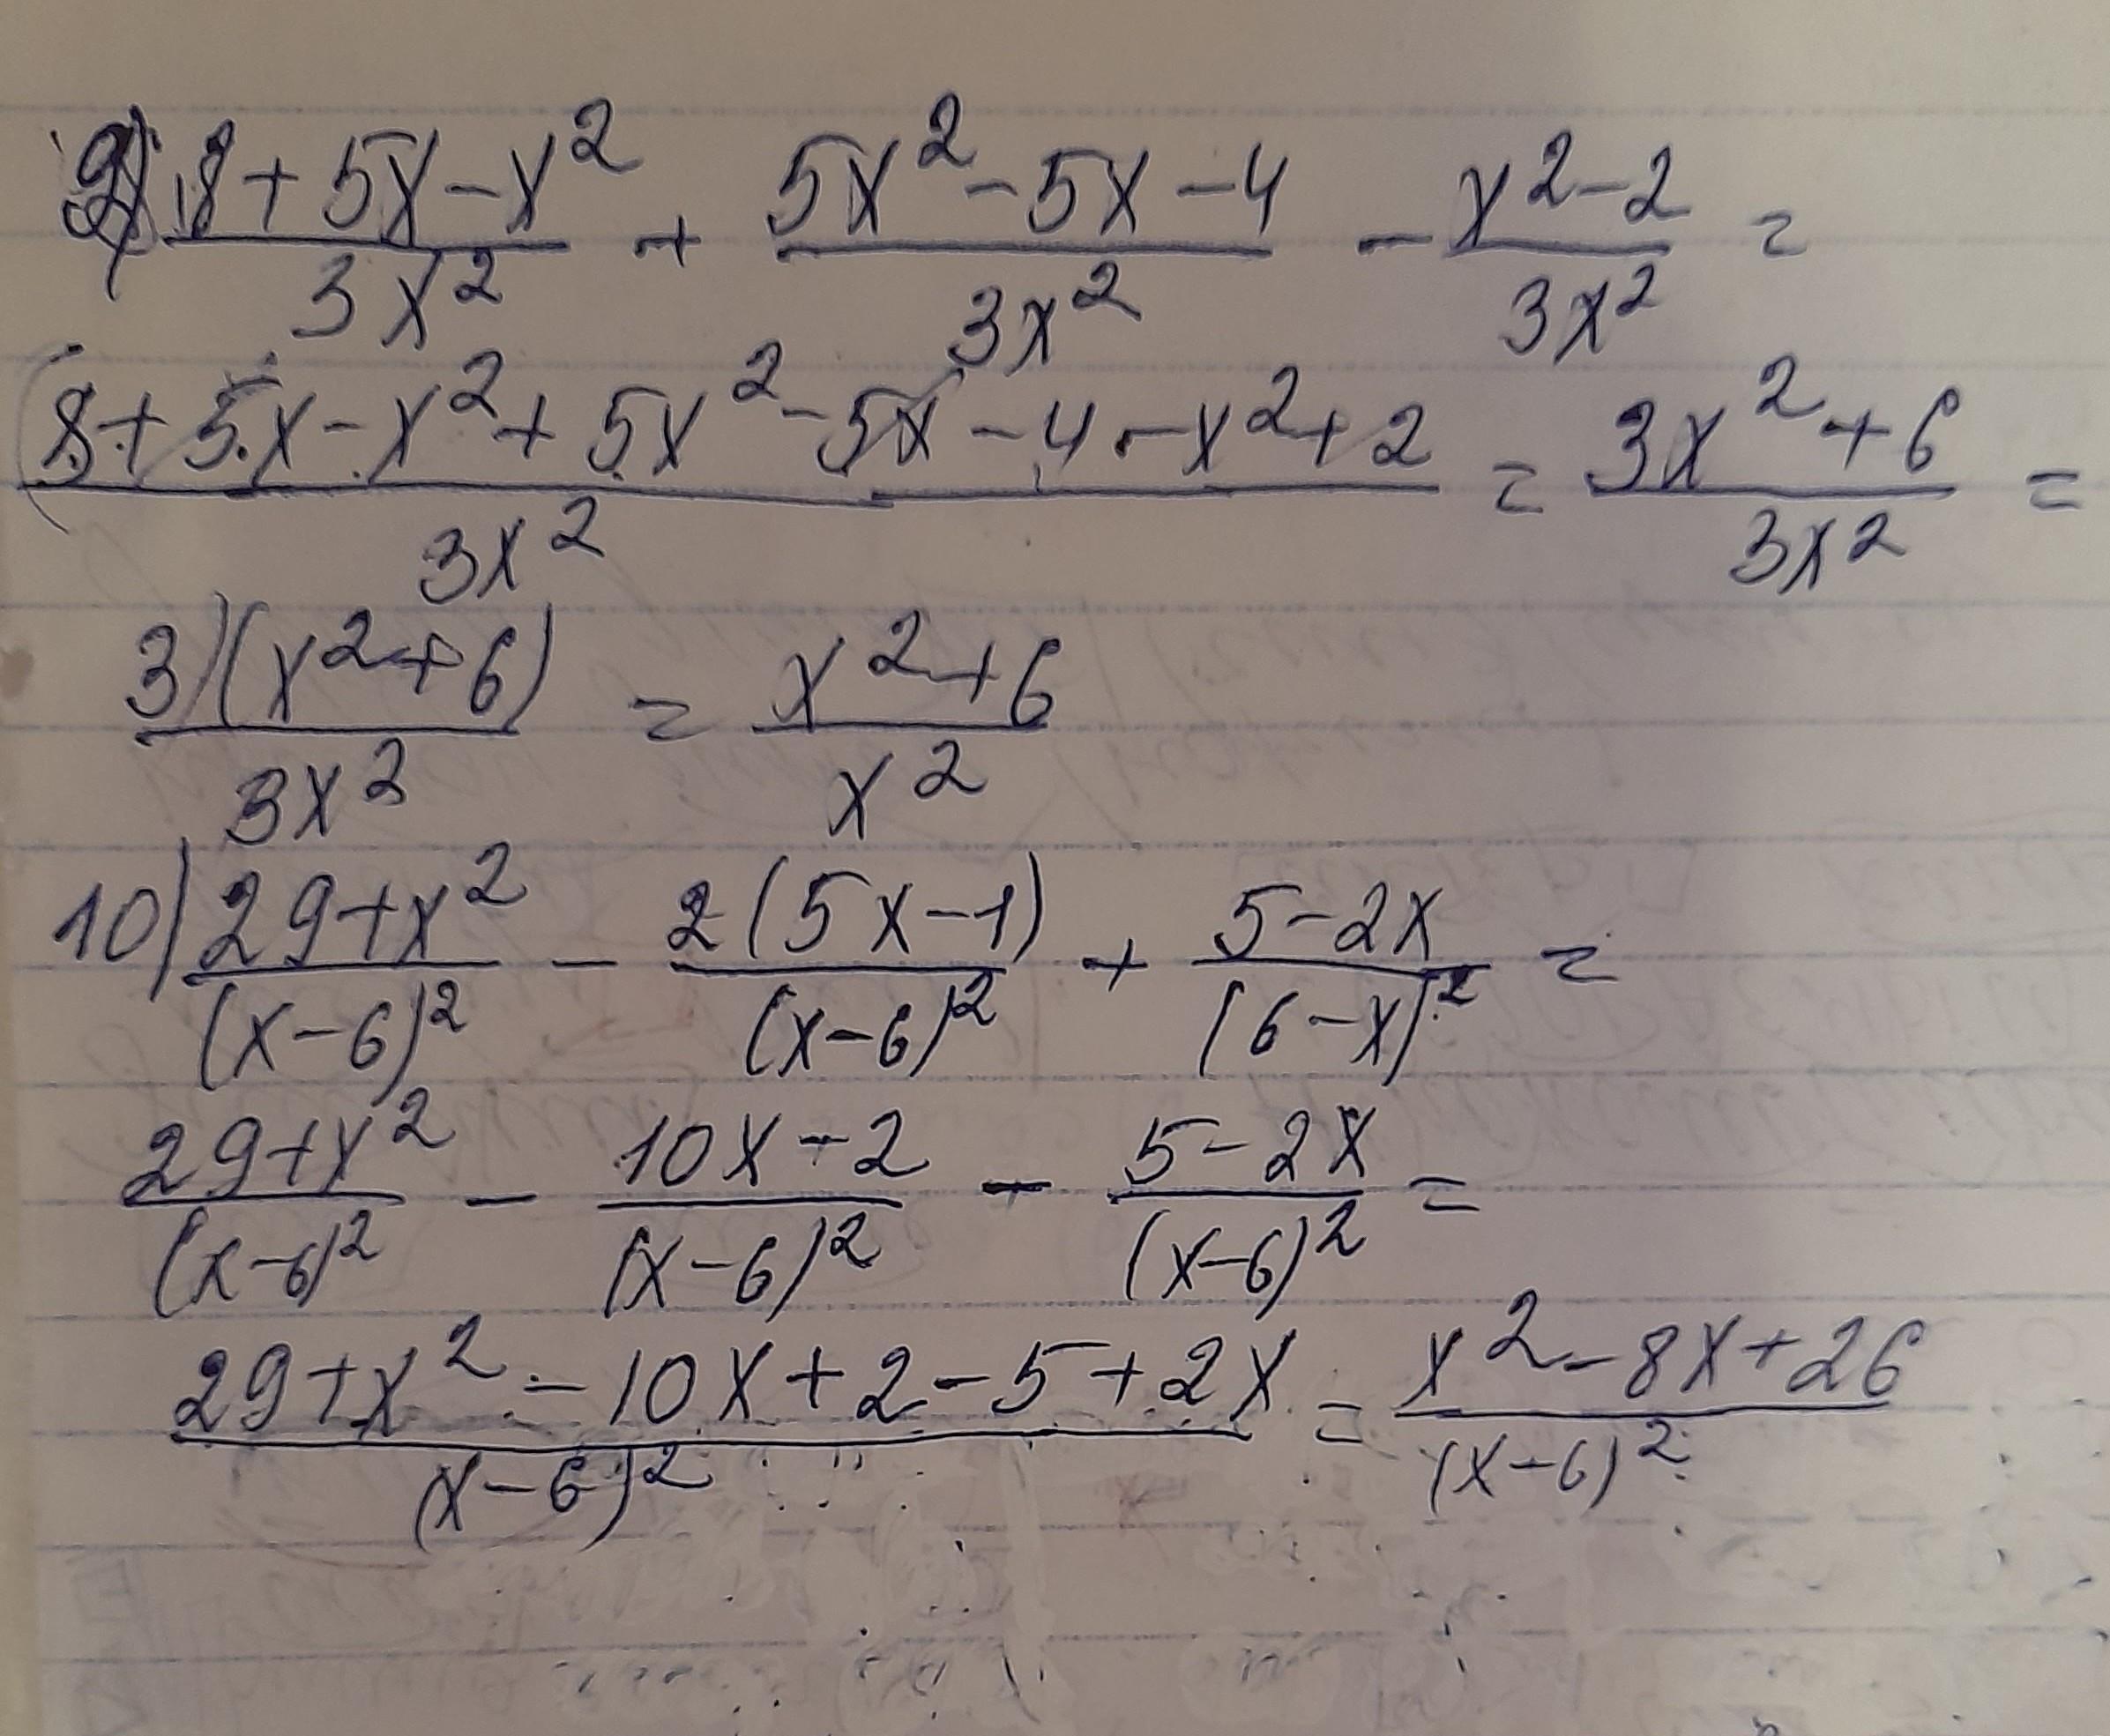 9) (8 + 5x - x²)/(3x²) + (5x² - 5x - 4)/(3x²) - (x² - 2)/(3x²) =
(8 + 5x - x² + 5x² - 5x - 4 - x² + 2)/(3x²) = (3x² + 6)/(3x²) =
(3(x² + 6))/(3x²) = (x² + 6)/(x²)
10) (29 + x²)/((x - 6)²) - (2(5x - 1))/((x - 6)²) + (5 - 2x)/((6 - x)²) =
(29 + x²)/((x - 6)²) - (10x - 2)/((x - 6)²) - (5 - 2x)/((x - 6)²) =
(29 + x² - 10x + 2 - 5 + 2x)/((x - 6)²) = (x² - 8x + 26)/((x - 6)²)